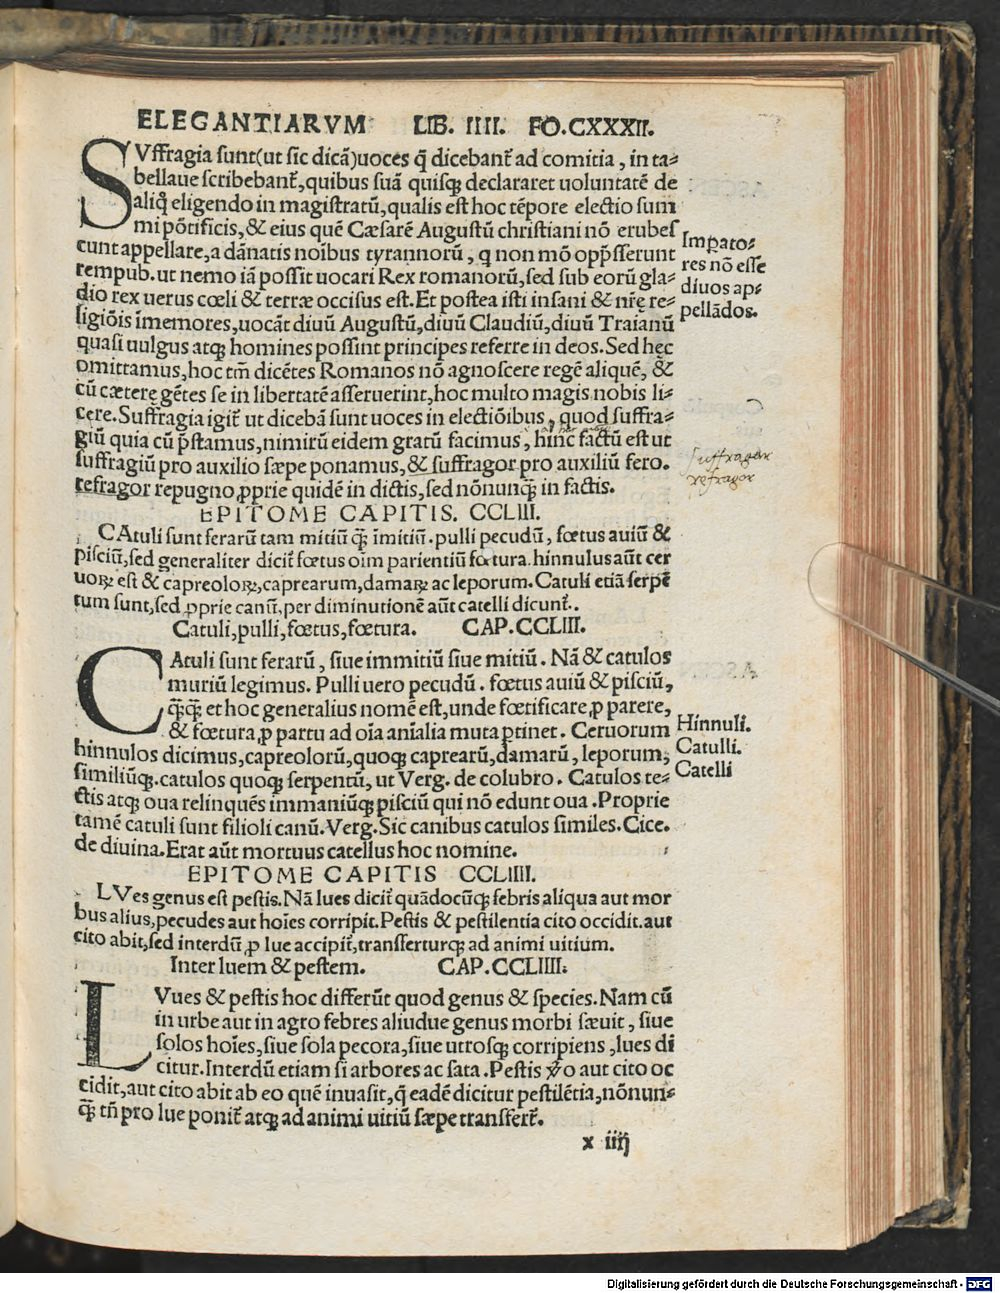 ELEGANTIARVM LIB. IIII. FO.CXXXII.
SVffragia sunt(ut sic dicā)uoces q̄ dicebant̄ ad comitia, in ta-
bellaue scribebant̄,quibus suā quisq; declararet uoluntatē de
aliq̄ eligendo in magistratū,qualis est hoc tēpore electio sum
mi pōtificis,& eius quē Cæsarē Augustū christiani nō erubes
cunt appellare,a dānatis noībus tyrannorū, q non mō opp̄sserunt
rempub.ut nemo iā possit uocari Rex romanorū,sed sub eorū gla-
dio rex uerus cœli & terræ occisus est.Et postea isti insani & nr̄ę re-
ligiōis īmemores,uocāt diuū Augustū,diuū Claudiū,diuū Traianū
quasi uulgus atq; homines possint principes referre in deos.Sed hęc
omittamus,hoc tm̄ dicētes Romanos nō agnoscere regē aliquē, &
cū cæterę gētes se in libertatē asseruerint,hoc multo magis nobis li-
cere.Suffragia igit̄ ut dicebā sunt uoces in electiōibus, quod suffra-
giū quia cū p̄stamus,nimirū eidem gratū facimus, hinc factū est ut
suffragiū pro auxilio sæpe ponamus,& suffragor pro auxiliū fero.
refragor repugno,ꝓprie quidē in dictis,sed nōnunq̄ in factis.
Impato-
res nō esse
diuos ap-
pellādos.
suffragor
refragor
EPITOME CAPITIS. CCLIII.
CAtuli sunt ferarū tam mitiū q̄ imitiū.pulli pecudū, fœtus auiū &
pisciū,sed generaliter dicit̄ fœtus oīm parientiū fœtura.hinnulus aūt cer
uoꝝ est & capreoloꝝ,caprearum,damaꝝ ac leporum.Catuli etiā serpē
tum sunt,sed ꝓprie canū,per diminutionē aūt catelli dicunt̄.
Catuli,pulli,fœtus,fœtura. CAP.CCLIII.
CAtuli sunt ferarū, siue immitiū siue mitiū. Nā & catulos
muriū legimus. Pulli uero pecudū. fœtus auiū & pisciū,
q̄q̄ et hoc generalius nomē est,unde fœtificare,ꝓ parere,
& fœtura,ꝓ partu ad oīa anīalia muta ptinet. Ceruorum
hinnulos dicimus,capreolorū,quoq; caprearū,damarū, leporum,
similiūq;.catulos quoq; serpentū, ut Verg. de colubro. Catulos te-
ctis atq; oua relinquēs immaniūq; pisciū qui nō edunt oua.Proprie
tamē catuli sunt filioli canū.Verg.Sic canibus catulos similes.Cice.
de diuina.Erat aūt mortuus catellus hoc nomine.
Hinnuli.
Catulli.
Catelli
EPITOME CAPITIS CCLIIII.
LVes genus est pestis.Nā lues dicit̄ quādocūq; febris aliqua aut mor
bus alius,pecudes aut hoīes corripit.Pestis & pestilentia cito occidit.aut
cito abit,sed interdū,ꝓ lue accipit̄,transferturq; ad animi uitium.
Inter luem & pestem. CAP.CCLIIII.
LVues & pestis hoc differūt quod genus & species.Nam cū
in urbe aut in agro febres aliudue genus morbi sæuit, siue
solos hoīes,siue sola pecora,siue utrosq; corripiens,lues di
citur.Interdū etiam si arbores ac sata.Pestis ꝟo aut cito oc
cidit,aut cito abit ab eo quē inuasit,q̄ eadē dicitur pestilētia,nōnun-
q̄ tn̄ pro lue ponit̄ atq; ad animi uitiū sæpe transfert̄.
x iiij
Digitalisierung gefördert durch die Deutsche Forschungsgemeinschaft - DFG